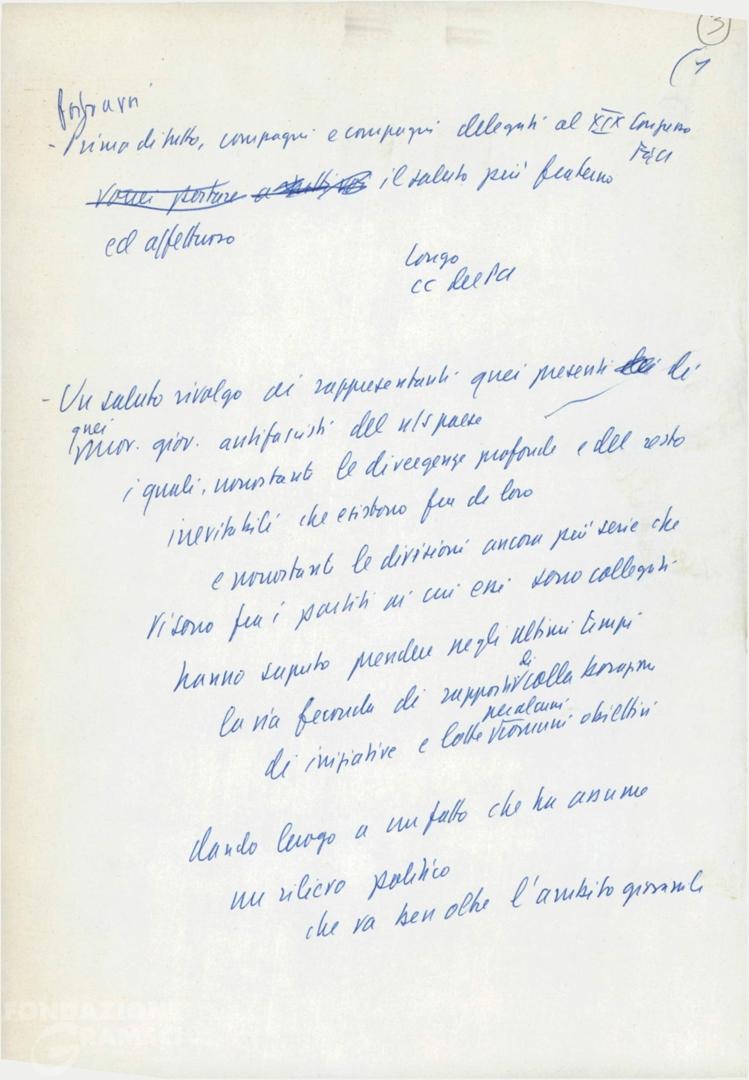 3
(1
- Prima di tutto, compagni e compagni delegati al XIX Congresso
FGCI
vorrei portare a tutti voi il saluto più fraterno
ed affettuoso
Longo
CC del PCI
- Un saluto rivolgo ai rappresentanti quei presenti dei di
quei mov. giov. antifascisti del n/s paese
i quali, nonostante le divergenze profonde e del resto
inevitabili che esistono fra de loro
e nonostante le divisioni ancora più serie che
vi sono fra i partiti ai cui essi sono collegati
hanno saputo prendere negli ultimi tempi
la via feconda di rapporti di collaborazione
di iniziative e lotte per alcuni comuni obiettivi
dando luogo a un fatto che ha assume
un rilievo politico
che va ben oltre l'ambito giovanile
FONDAZIONE
GRAMSCI